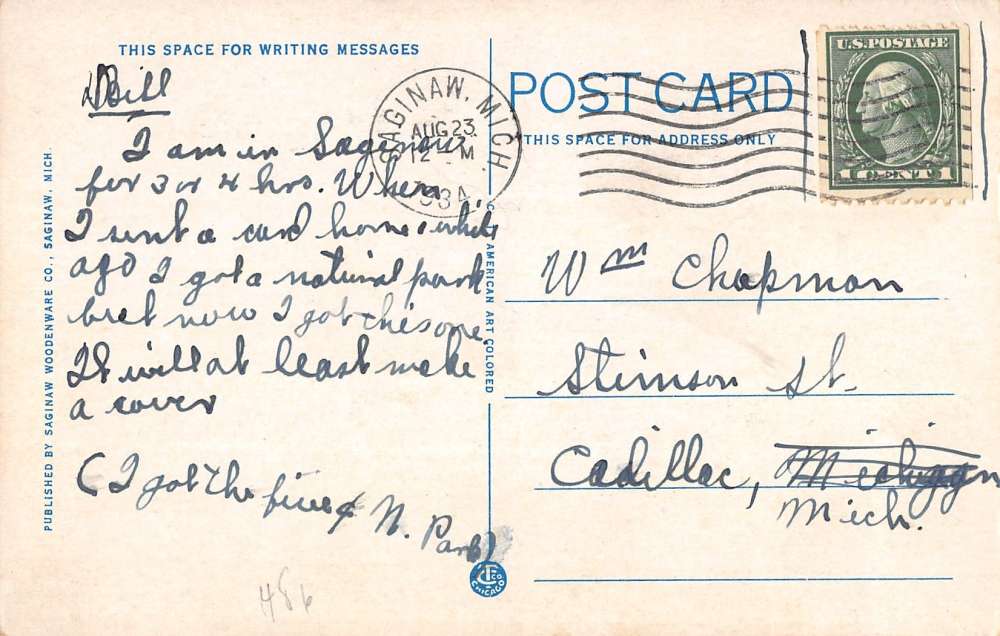 THIS SPACE FOR WRITING MESSAGES
Bill
I am in Saginaw
for 3 or 4 hrs. When
I sent a card home a while
ago I got a national park
but now I got this one.
It will at least make
a cover
(I got the five ¢ N. Park)
486
PUBLISHED BY SAGINAW WOODENWARE CO., SAGINAW, MICH.
AMERICAN ART COLORED
SAGINAW, MICH.
AUG 23
12 M
1934
POST CARD
THIS SPACE FOR ADDRESS ONLY
U.S. POSTAGE
1 CENT 1
Wm Chapman
Stimson St.
Cadillac, Michigan
Mich.
CHICAGO